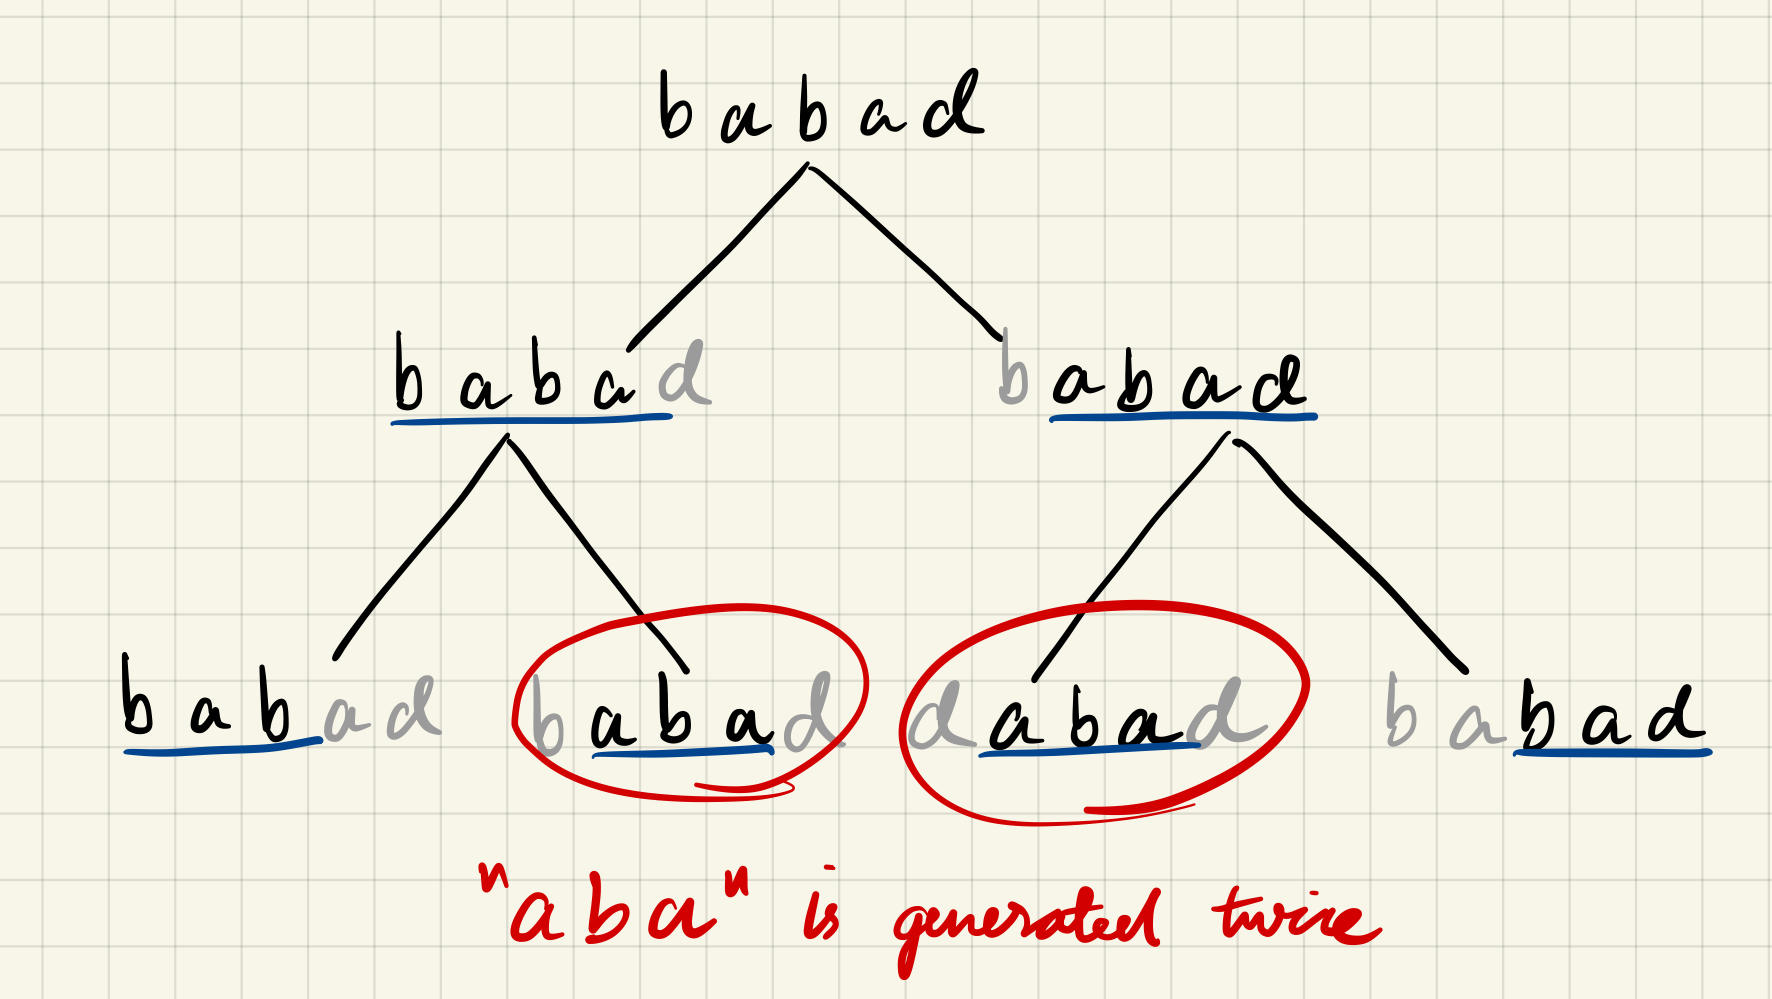 babad
babad babad
babad babad dabad babad
"aba" is generated twice